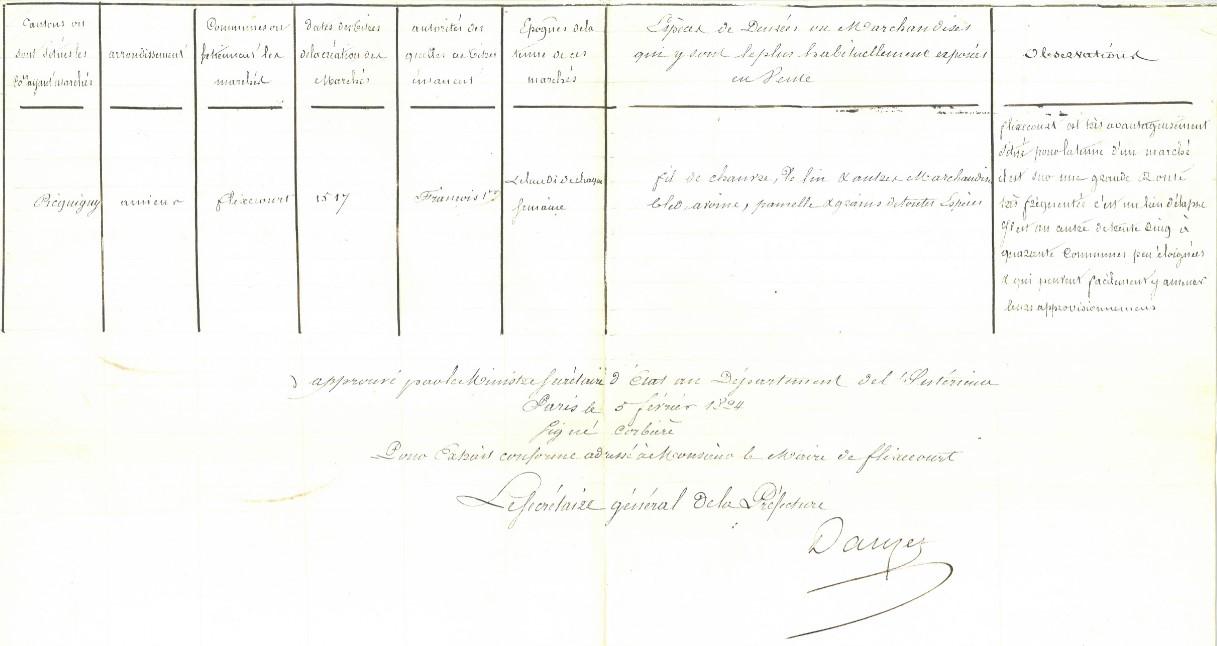 Cantons où
sont situés les
Cnes ayant marchés
arrondissement
Communes où
se tiennent les
marchés
Dates des titres
de la création des
Marchés
autorités des
quelles ces titres
émanent
Epoques de la
tenue de ces
marchés
Espèces de Denrées ou Marchandises
qui y sont le plus habituellement exposées
en Vente
Observations
Picquigny
amiens
flixecourt
1517
François 1er
Le lundi de chaque
semaine
fil de chanvre, de lin & autres Marchandises
bled avoine, pamelle & grains de toutes Espèces
flixecourt est très avantageusement
situé pour la tenue d'un marché
il est sur une grande Route
très fréquentée c'est un lieu d'étape
qui est au centre de trente cinq à
quarante Communes peu éloignées
& qui peuvent facilement y amener
leurs approvisionnemens
approuvé par le Ministre Secrétaire d'Etat au Département de l'Intérieur
Paris le 5 février 1824
Signé Corbière
Pour Extrait conforme adressé à Monsieur le Maire de flixecourt
Le Secrétaire général de la Préfecture